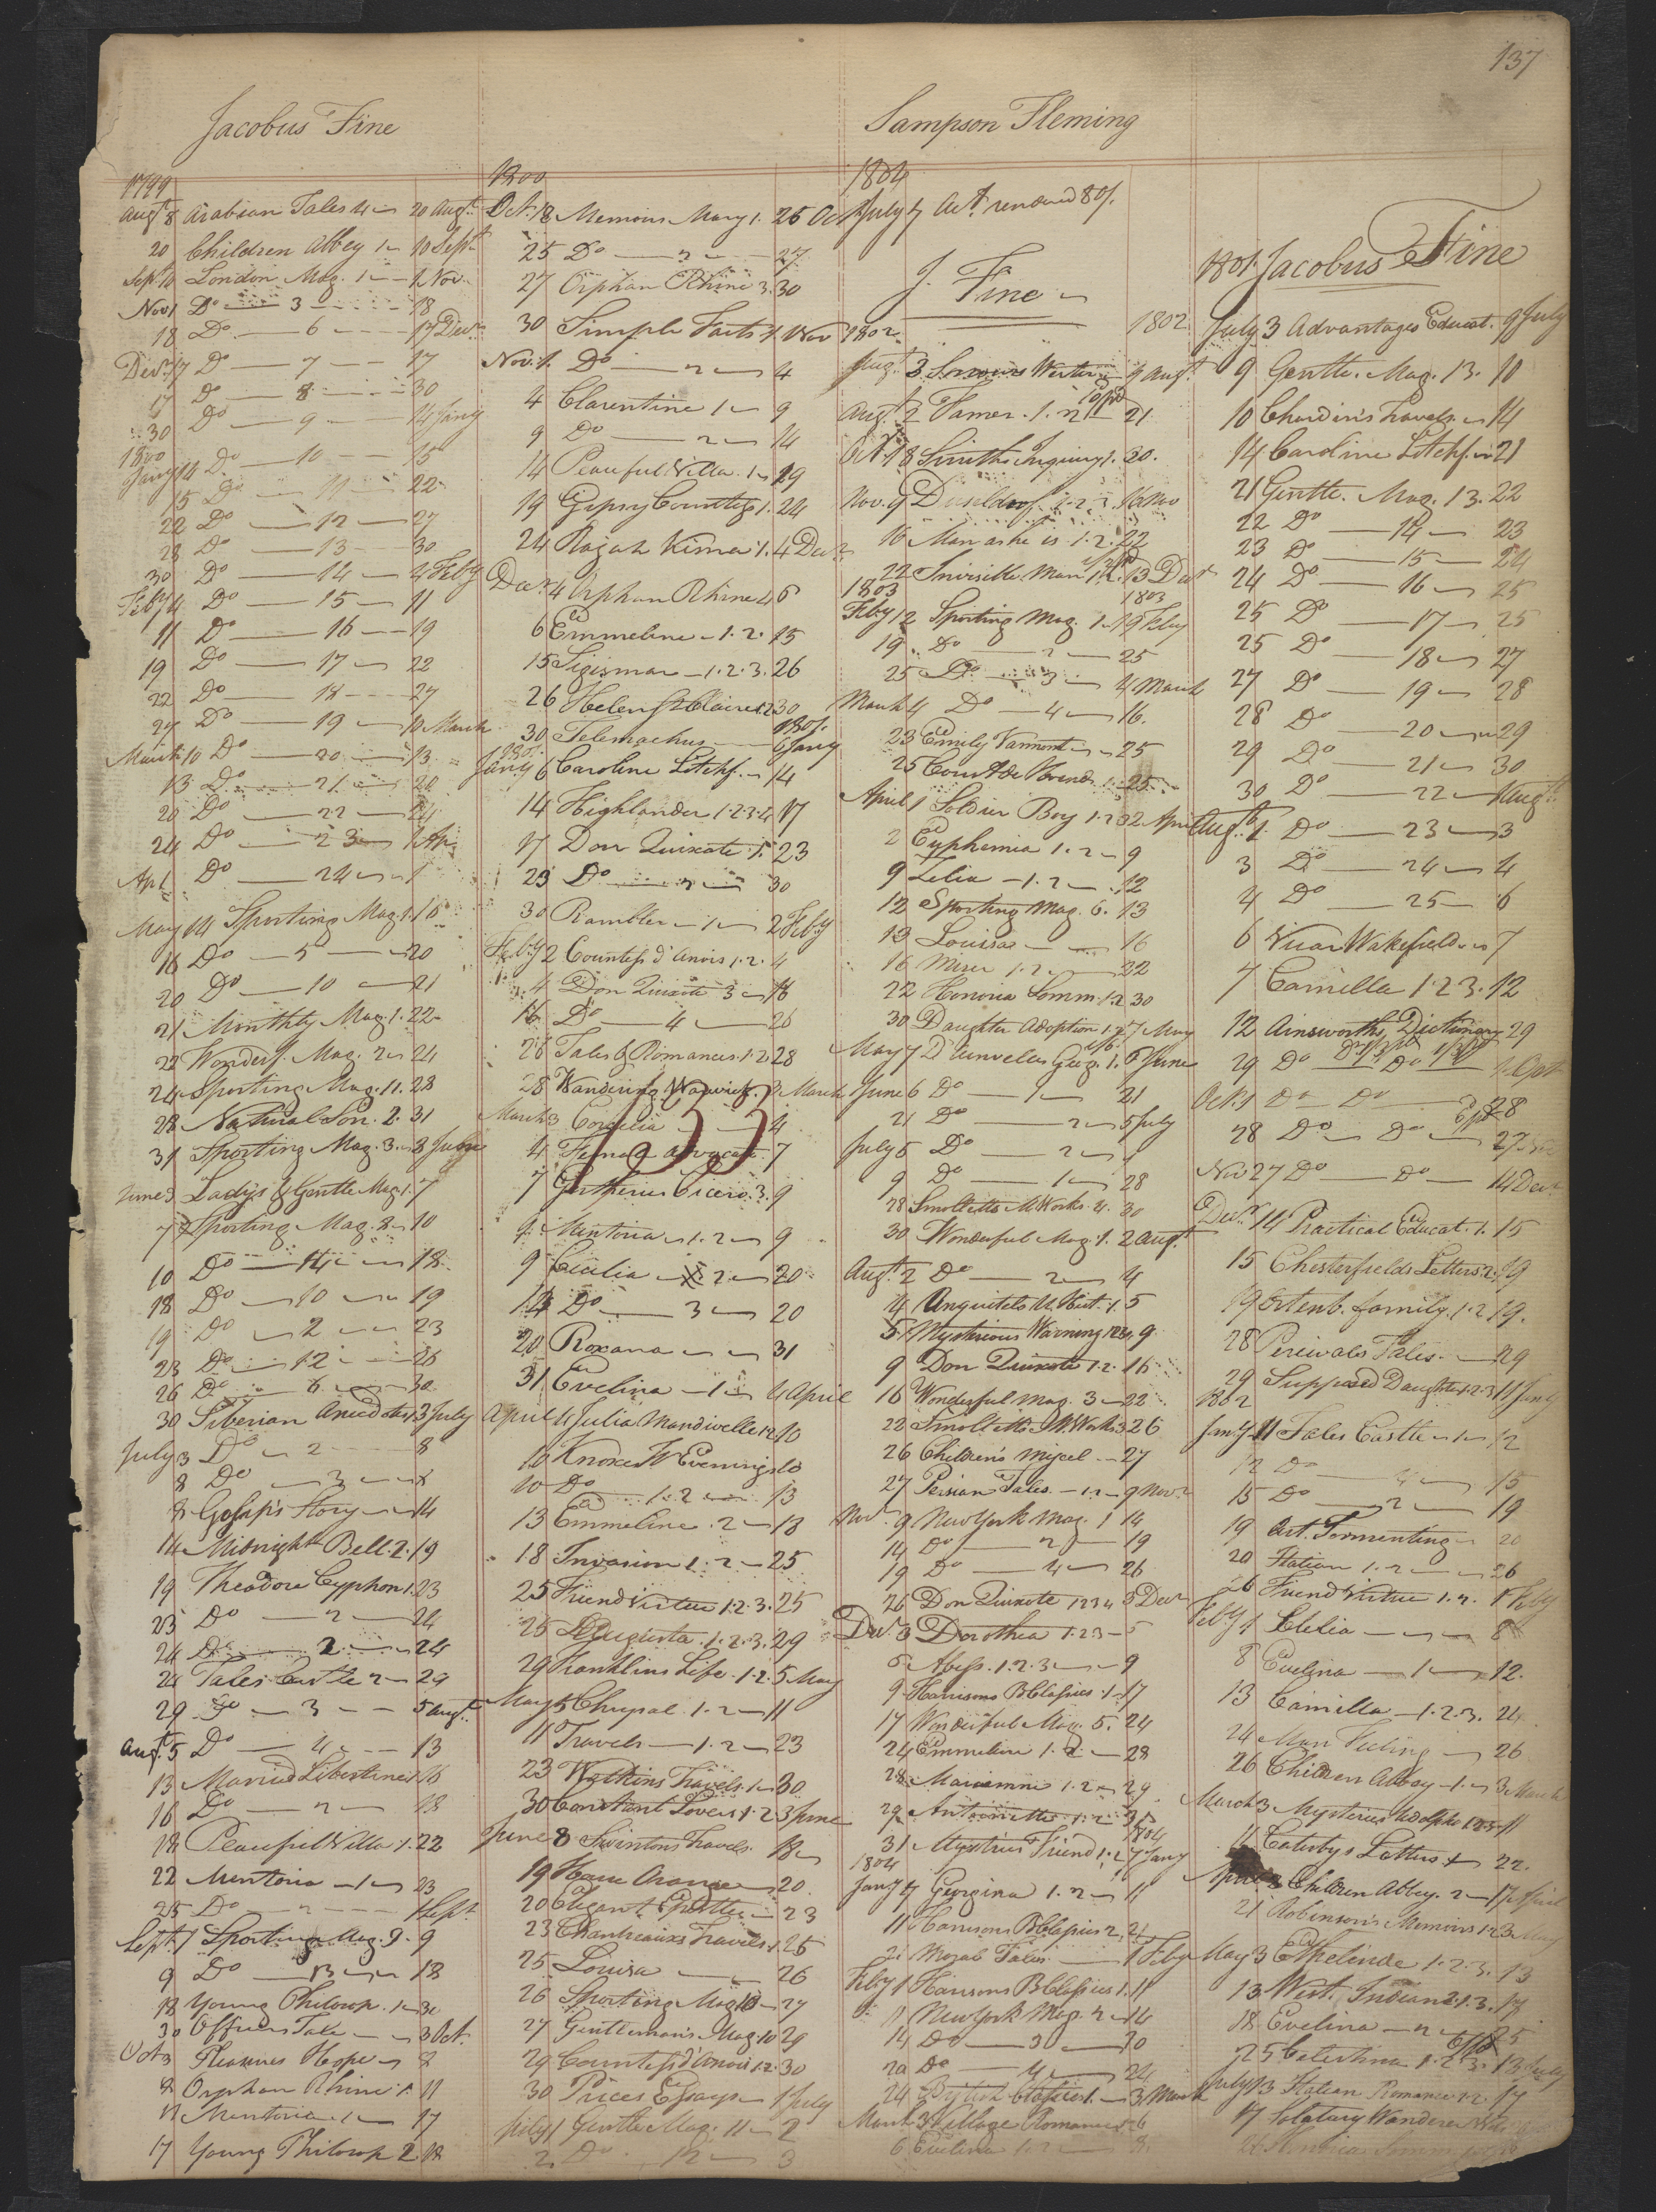 137
Jacobus Fine
1799
Augt 8 Arabian Tales 4 20 Augt
20 Children Abbey 1 10 Sept
Sept 10 London Mag. 1 1 Nov
Nov 1 Do 3 18
18 Do 6 17 Decr
Decr 17 Do 7 17
17 Do 8 30
30 Do 9 14 Jany
1800
Jany 14 Do 10 15
15 Do 11 22
22 Do 12 27
28 Do 13 30
30 Do 14 4 Feby
Feby 4 Do 15 11
11 Do 16 19
19 Do 17 22
22 Do 18 27
27 Do 19 10 March
March 10 Do 20 13
13 Do 21 20
20 Do 22 24
24 Do 23 1 Ap
Ap 1 Do 24 1
May 14 Sporting Mag. 1. 16
16 Do 5 20
20 Do 10 21
21 Monthly Mag. 1. 22
22 Wonderf. Mag. 2 24
24 Sporting Mag. 11. 28
28 Natural Son. 2. 31
31 Sporting Mag. 3. 3 June
June 3 Ladys & Gentle Mag 1. 7
7 Sporting Mag. 8 10
10 Do 4 18
18 Do 10 19
19 Do 2 23
23 Do 12 26
26 Do 6 30
30 Siberian Anecdotes 1 3 July
July 3 Do 2 8
8 Do 3 8
8 Gossip's Story 14
14 Midnight Bell. 2. 19
19 Theodore Cyphon 1. 23
23 Do 2 24
24 Do 2 24
24 Tales Castle 2 29
29 Do 3 5 Augt
Augt 5 Do 4 13
13 Married Libertine 1 16
16 Do 2 18
18 Peaceful Villa 1. 22
22 Mentoria 1 23
25 Do 2 1 Sept
Sept 1 Sporting Mag. 9. 9
9 Do 13 18
18 Young Philosop. 1 30
30 Officers Tale 3 Oct
Oct 3 Pleasures Hope 8
8 Orphan Rhine 1. 11
11 Mentoria 1 17
17 Young Philosop 2. 18
1800
Oct. 18 Memoirs Mary 1. 25 Oct
25 Do 2 27
27 Orphan Rhine 3. 30
30 Simple Facts 1. 1 Nov
Nov. 1. Do 2 4
4 Clarentine 1 9
9 Do 2 14
14 Peaceful Villa. 1 19
19 Gipsy Countess 1. 24
24 Rajah Kisna 1. 4 Decr
Decr 4 Orphan Rhine 4 6
6 Emmeline 1. 2. 15
15 Sigismar 1. 2. 3. 26
26 Helen St Claire 1 2 30
30 Telemachus 1801. 6 Jany
1801.
Jany 6 Caroline Litchf. 14
14 Highlander 1 2 3 4 17
17 Don Quixote 1. 23
23 Do 2 30
30 Rambler 1 2 Feby
Feby 2 Countess d'Anois 1. 2. 4
4 Don Quixote 3 16
16 Do 4 26
26 Tales & Romances 1. 2 28
28 Wandering Warwick. 3 March
March 3 Cordelia 4
4 Female Advocate. 7
133
7 Gertherius Cicero. 3. 9
9 Mentoria 1. 2 9
9 Cicilia 2 20
12 Do 3 20
20 Roxana 31
31 Evelina 1 4 April
April 4 Julia Mandivelle 1 2 10
10 Knoxes W Evenings 10
10 Do 1. 2 13
13 Emmeline. 2 18
18 Invasion 1. 2 25
25 Friend Virtue 1. 2. 3. 25
25 Augusta 1. 2. 3. 29
29 Franklins Life. 1. 2. 5 May
May 5 Chrysal 1. 2 11
11 Travels 1. 2 23
23 Watkins Travels. 1 30
30 Constant Lovers 1. 2 3 June
June 8 Swintons Travels. 18
19 20
20 Elegant Epistles 23
23 Travels. 1. 25
25 Louisa 26
26 Sporting Mag 10 27
27 Gentleman's Mag. 10 29
29 Countess d'Anois 1. 2. 30
30 Prices Essays 1 July
July 1 Gentle Mag. 11 2
2 Do 12 3
Sampson Fleming
1804
July 7 Act. rendered 801.
J. Fine
1802 1802
Augt. 3 Sorrows Werter 9 Augt
Augt. 2 Tamer. 1. 2 21
Oct 18 Smiths Inquiry 1. 30.
Nov. 9 1. 2. 3. 16 Nov
16 Man as he is 1. 2. 22
22 Invisible Man 1. 2. 13 Decr
1803 1803
Feby 12 Sporting Mag. 1 19 Feby
19 Do 2 25
25 Do 3 4 March
March 4 Do 4 16.
23 Emily Varmont 25
25 Count de 25
April 1 Soldier Boy 1. 2 3 2 April
2 Euphemia 1. 2 9
9 Lelia 1. 2 12
12 Sporting Mag. 6. 13
13 Louisa 16
16 Miser 1. 2 22
22 Honoria Somm. 1. 2 30
30 Daughter Adoption 1. 2 7 May
May 7 1. 6 June
June 6 Do 1 21
21 Do 2 5 July
July 5 Do 2 9
9 Do 1 28
28 Smolletts M Works 4. 30
30 Wonderful Mag. 1. 2 Augt.
Augt. 2 Do 2 4
4 1. 5
5 Mysterious Warning 1 2 3 4. 9
9 Don Quixote 1. 2. 16
16 Wonderful Mag. 3 22
22 Smolletts M. Works 3 26
26 Children's Miscel. 27
27 Persian Tales. 1. 2 9 Novr
Nov. 9 New York Mag. 1 14
14 Do 2 19
19 Do 4 26
26 Don Quixote 1 2 3 4 3 Decr
Decr 3 Dorothea 1. 2 3 5
5 Abess. 1. 2. 3 9
9 Harrisons B Classics. 1 17
17 Wonderful Mag. 5. 24
24 Emmeline 1. 2. 28
28 Mariamne 1. 2 29
29 Antoinette 1. 2 31
1804
31 Mystrius Friend 1. 2 7 Jany
1804
Jany 7 Georgina 1. 2 11
11 Harrisons B Classics 2. 21
21 Moral Tales 1 Feby
Feby 1 Harrisons B Classics 1. 11
11 New York Mag. 2 14
14 Do 3 20
20 Do 4 24
24 British Classics 1. 3 March
March 3 Village Romance 6
6 Evelina 1. 2 8.
1801. Jacobus Fine
July 3 Advantages Educat. 9 July
9 Gentle. Mag. 13. 10
10 Chardin's Travels. 14
14 Caroline Litchf. 21
21 Gentle. Mag. 13. 22
22 Do 14 23
23 Do 15 24
24 Do 16 25
25 Do 17 25
25 Do 18 27
27 Do 19 28
28 Do 20 29
29 Do 21 30
30 Do 22 1 Augt
Augt. 1. Do 23 3
3 Do 24 4
4 Do 25 6
6 Vicar Wakefield 7
7 Camilla 1. 2 3. 12
12 Ainsworths Dictionary 29
29 Do Do 1 Oct
Oct. 1 Do Do 28
28 Do Do 27
Nov 27 Do Do 14 Decr
Decr 14 Practical Educat. 1. 15
15 Chesterfields Letters 2. 19
19 Ortenb. family. 1. 2 19.
28 Percivals Tales. 29
29 Supposed Daughter 1. 2. 3 11 Jany
1802
Jany 11 Tales Castle 1 12
12 Do 4 15
15 Do 2 19
19 Art. Tormenting 20
20 Italian 1. 2 26
26 Friend Virtue 1. 2. 1 Feby
Feby 1 Clelia 8
8 Evelina 1 12.
13 Camilla 1. 2. 3. 24
24 Man Feeling 26
26 Children Abbey 1 3 March
March 3 Mysteries Udolpho 1. 2 3 11
11 Catesbys Letters 22.
Children Abbey. 2 17 April
21 Robinson's Memoirs 1. 2 3 May
May 3 Ethelinde 1. 2. 3. 13
13 West. Indian 2. 1. 3. 17
18 Evelina 2 25
25 Celestina 1. 2 3. 13 July
July 13 Italian Romance 1. 2. 17
17 Solatary Wanderer